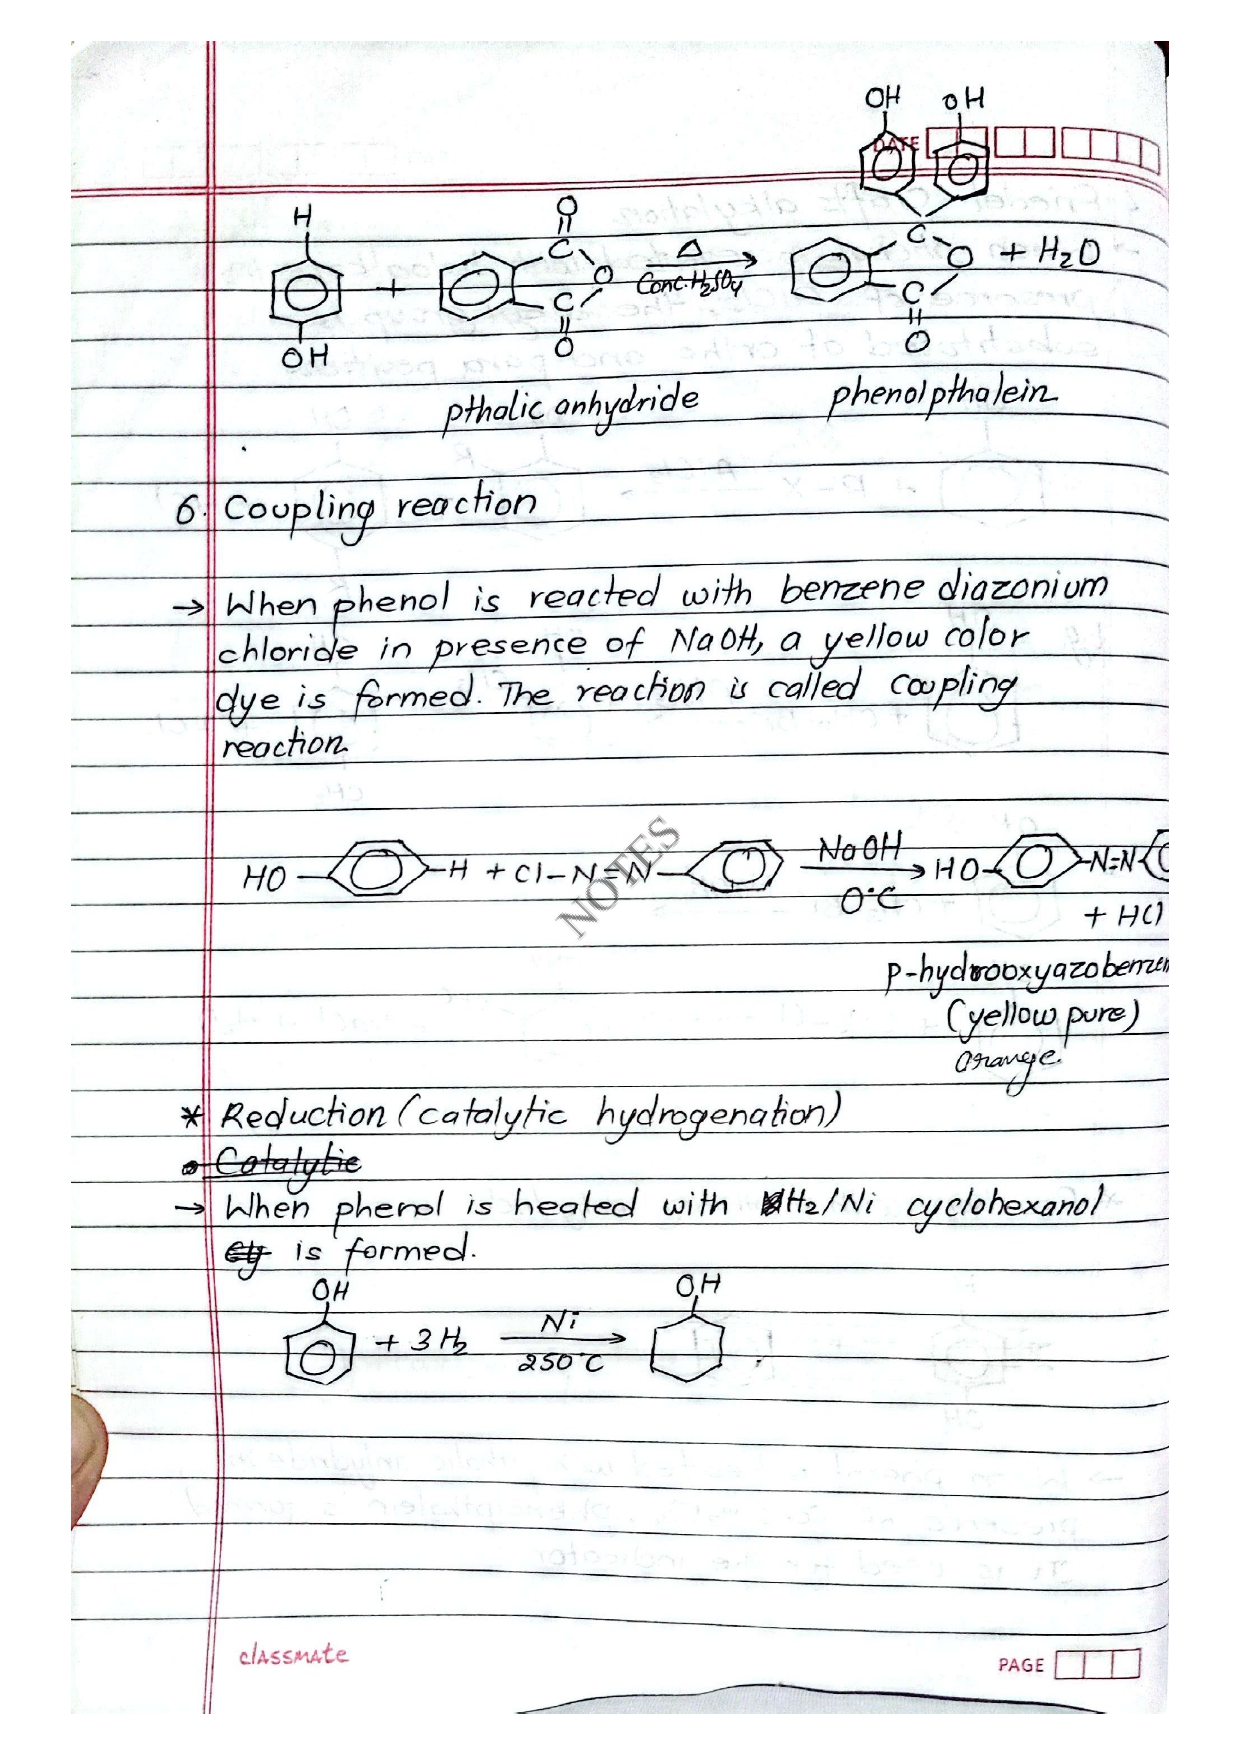 OH OH
DATE
H
O
C
O
C
O
OH
+
Δ
Conc. H2SO4
C
O
C
O
+ H2O
pthalic anhydride
phenolpthalein
6. Coupling reaction
→ When phenol is reacted with benzene diazonium
chloride in presence of NaOH, a yellow color
dye is formed. The reaction is called coupling
reaction
HO H + Cl-N=N NaOH → HO N=N
0°C
+ HCl
NOTES
p-hydrooxyazobenzen
(yellow pure)
orange.
* Reduction (catalytic hydrogenation)
• Catalytic
→ When phenol is heated with H2/Ni cyclohexanol
cy is formed.
OH OH
+ 3H2 Ni →
250°C
classmate
PAGE